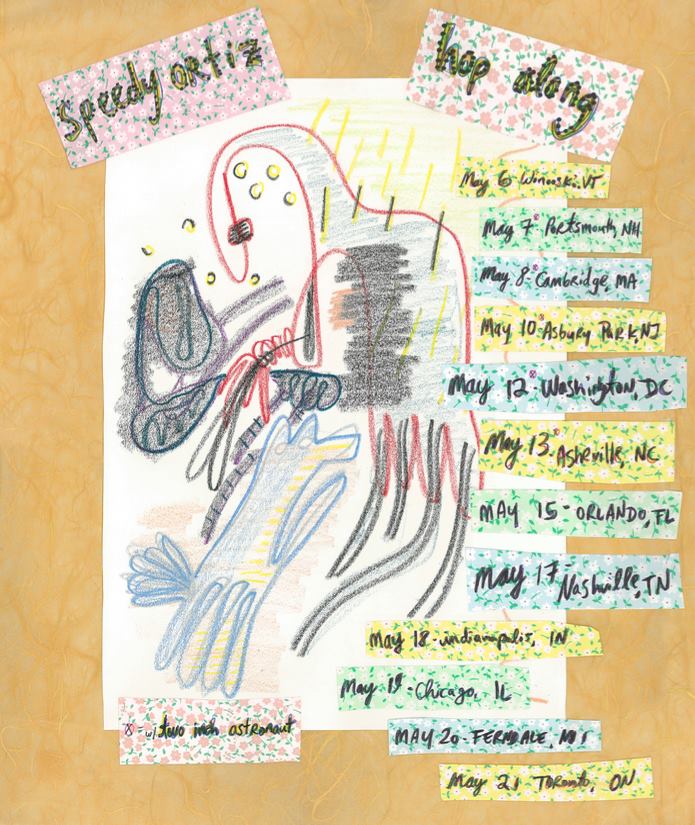 speedy ortiz
hop along
May 6 Winooski, VT
May 7 * Portsmouth NH
May 8 * Cambridge, MA
May 10 * Asbury Park, NJ
May 12 * Washington, DC
May 13 * Asheville, NC
MAY 15 - ORLANDO, FL
May 17 - Nashville, TN
May 18 - indianapolis, IN
May 19 - Chicago, IL
MAY 20 - FERNDALE, MI
May 21 Toronto, ON
* - w/ two inch astronaut